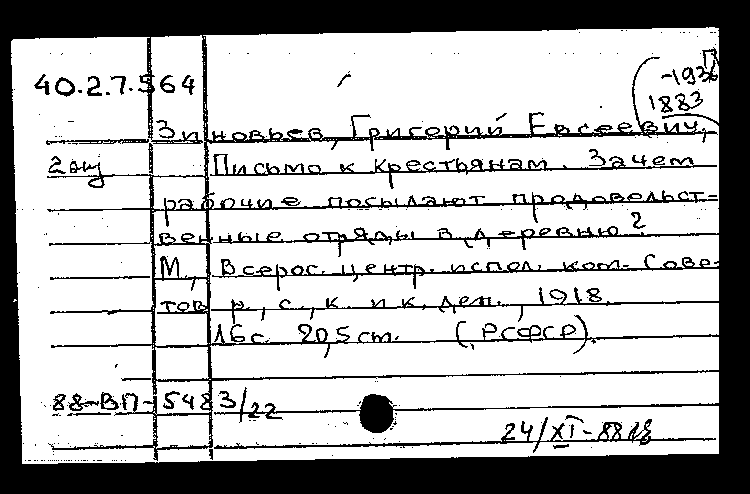 40.2.7.564
-1936
1883
Зиновьев, Григорий Евсеевич,
2 экз Письмо к крестьянам. Зачем
рабочие посылают продовольст=
венные отряды в деревню?
М., Всерос. центр. испол. ком. Сове-
тов р., с., к. и к. деп., 1918.
16 с. 20,5 см. (РСФСР).
88-ВП-5483/22
24/XI-88